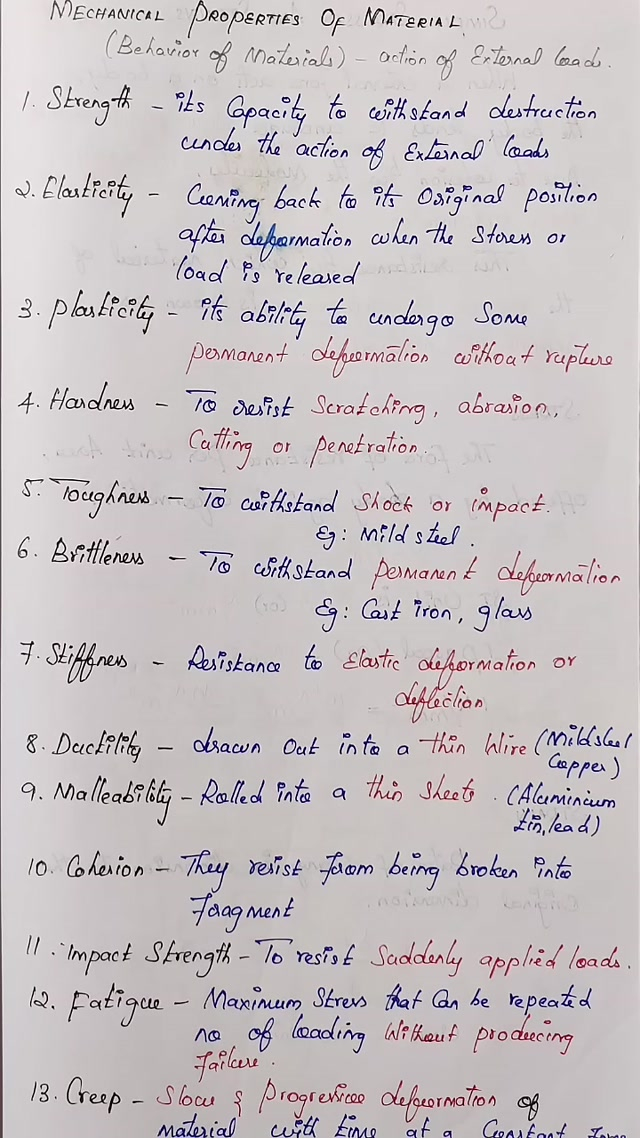 MECHANICAL PROPERTIES OF MATERIAL
(Behavior of Materials) - action of External loads.
1. Strength - its Capacity to withstand destruction
under the action of External loads
2. Elasticity - Coming back to its Original position
after deformation when the Stress or
load is released
3. plasticity - its ability to undergo Some
permanent deformation without rupture
4. Hardness - To resist Scratching, abrasion,
Cutting or penetration.
5. Toughness - To withstand Shock or impact.
Eg: Mild steel.
6. Brittleness - To withstand permanent deformation
Eg: Cast iron, glass
7. Stiffness - Resistance to Elastic deformation or
deflection
8. Ductility - drawn out into a thin Wire (Mild steel
Copper)
9. Malleability - Rolled into a thin sheets. (Aluminium
tin, lead)
10. Cohesion - They resist from being broken into
fragment
11. Impact Strength - To resist Suddenly applied loads.
12. Fatigue - Maximum Stress that Can be repeated
no of loading Without producing
failure.
13. Creep - Slow & Progressive deformation of
material with time at a Constant